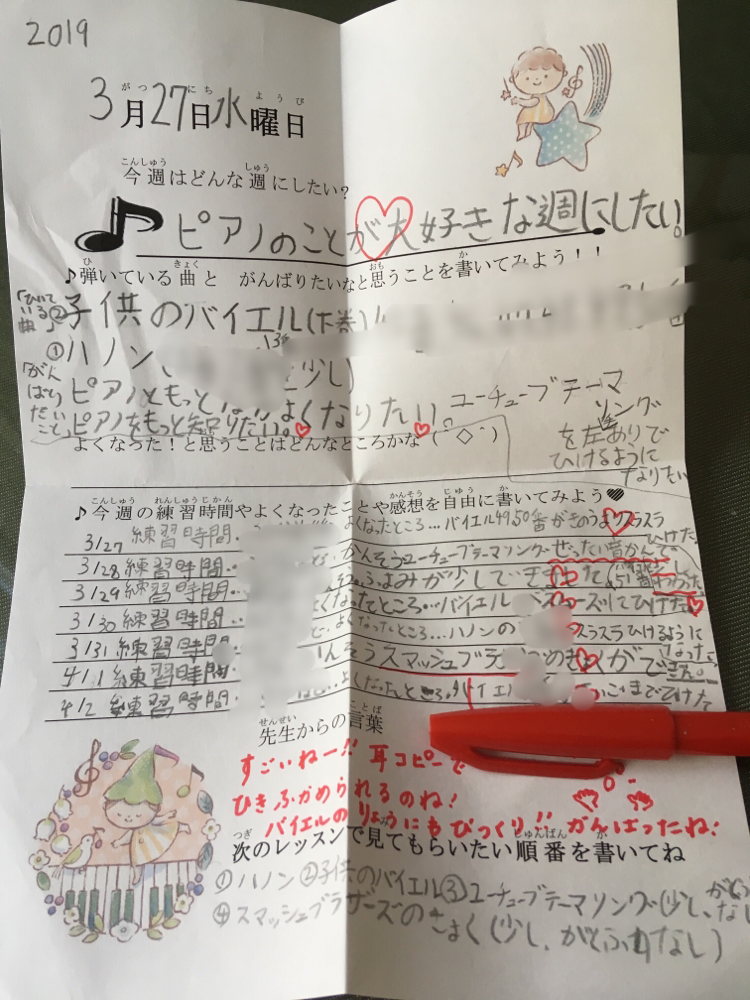 2019
3月27日水曜日
がつ にち ようび
こんしゅう しゅう
今週はどんな週にしたい?
ピアノのことが大好きな週にしたい。
ひ きょく おも か
♪弾いている曲と がんばりたいなと思うことを書いてみよう!!
「ひいている曲」
②子供のバイエル(下巻)
①ハノン
少し)
「がんばりたいこと」
ピアノともっと
よくなりたい。
ピアノをもっと知りたい。
ユーチューブテーマソング
を左ありで
ひけるように
なりたい
よくなった!と思うことはどんなところかな(´◇`)
こんしゅう れんしゅうじかん かんそう じゆう か
♪今週の練習時間やよくなったことや感想を自由に書いてみよう♥
3/27 練習時間・ よくなったところ…バイエル49,50番がきのうよりスラスラひけた。
3/28 練習時間・ かんそうユーチューブテーマソングぜったい音かんで
3/29 練習時間・・ ふよみが少しできました
3/30 練習時間・ なったところ・・バイエル スムーズにひけた。
3/31 練習時間・・ よくなったところ…ハノンの スラスラひけるようになった
4/1 練習時間・ んそうスマッシュブラ のきょくができた。
4/2 練習時間・ よくなったところ バイエル ここまでひけた
せんせい ことば
先生からの言葉
すごいねー!! 耳コピーで
ひきふかめられるのね!
バイエルのりょうにもびっくり!! がんばったね!
つぎ じゅんばん か
次のレッスンで見てもらいたい順番を書いてね
①ハノン②子供のバイエル③ユーチューブテーマソング(少し、がくふなし)
④スマッシュブラザーズのきょく(少し、がくふなし)